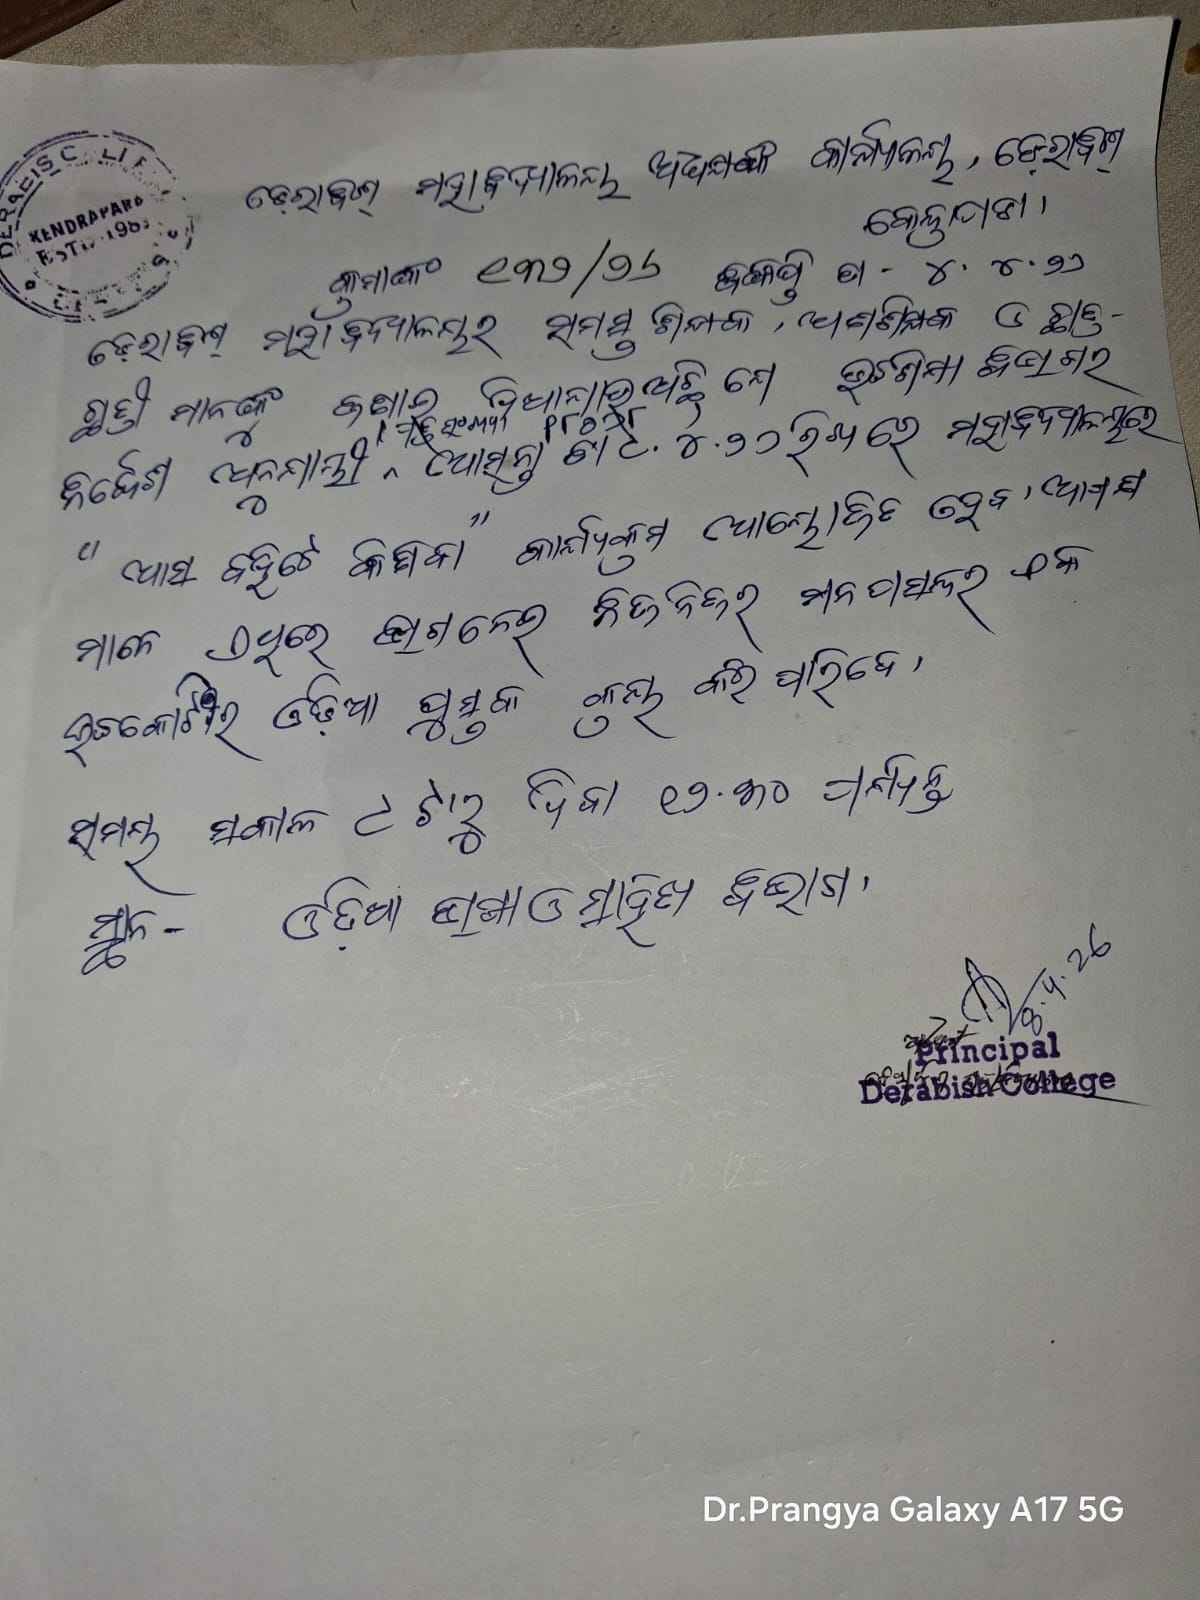 ଡେରାବିଶ୍ ମହାବିଦ୍ୟାଳୟ ଅଧ୍ୟକ୍ଷଙ୍କ କାର୍ଯ୍ୟାଳୟ, ଡେରାବିଶ୍
କେନ୍ଦ୍ରାପଡା ।
KENDRAPARA
ESTD-1983
କ୍ରମାଙ୍କ ୧୩୨/୨୬ ବିଜ୍ଞପ୍ତି ତା - ୪. ୪. ୨୬
ଡେରାବିଶ୍ ମହାବିଦ୍ୟାଳୟର ସମସ୍ତ ଶିକ୍ଷକ, ଅଣଶିକ୍ଷକ ଓ ଛାତ୍ର-
ଛାତ୍ରୀ ମାନଙ୍କୁ ଜଣାଇ ଦିଆଯାଉଅଛି ଯେ ଉଚ୍ଚଶିକ୍ଷା ବିଭାଗର
ପତ୍ର ସଂଖ୍ୟା
ନିର୍ଦ୍ଦେଶ ଅନୁଯାୟୀ ଆସନ୍ତା ତା ୯. ୪. ୨୬ ରିଖ ରେ ମହାବିଦ୍ୟାଳୟରେ
" ଆସ ବହିଟେ କିଣିବା " କାର୍ଯ୍ୟକ୍ରମ ଆୟୋଜିତ ହେବ । ଆପଣ
ମାନେ ଏଥିରେ ଭାଗ ନେଇ ନିଜନିଜର ମନପସନ୍ଦର ଏକ
ଉଚ୍ଚକୋଟୀର ଓଡ଼ିଆ ପୁସ୍ତକ କ୍ରୟ କରି ପାରିବେ ।
ସମୟ ସକାଳ ୯ ଟାରୁ ଦିବା ୧୨.୩୦ ପର୍ଯ୍ୟନ୍ତ
ସ୍ଥାନ - ଓଡ଼ିଆ ଭାଷା ଓ ସାହିତ୍ୟ ବିଭାଗ ।
8.4.26
Principal
Derabish College
Dr.Prangya Galaxy A17 5G